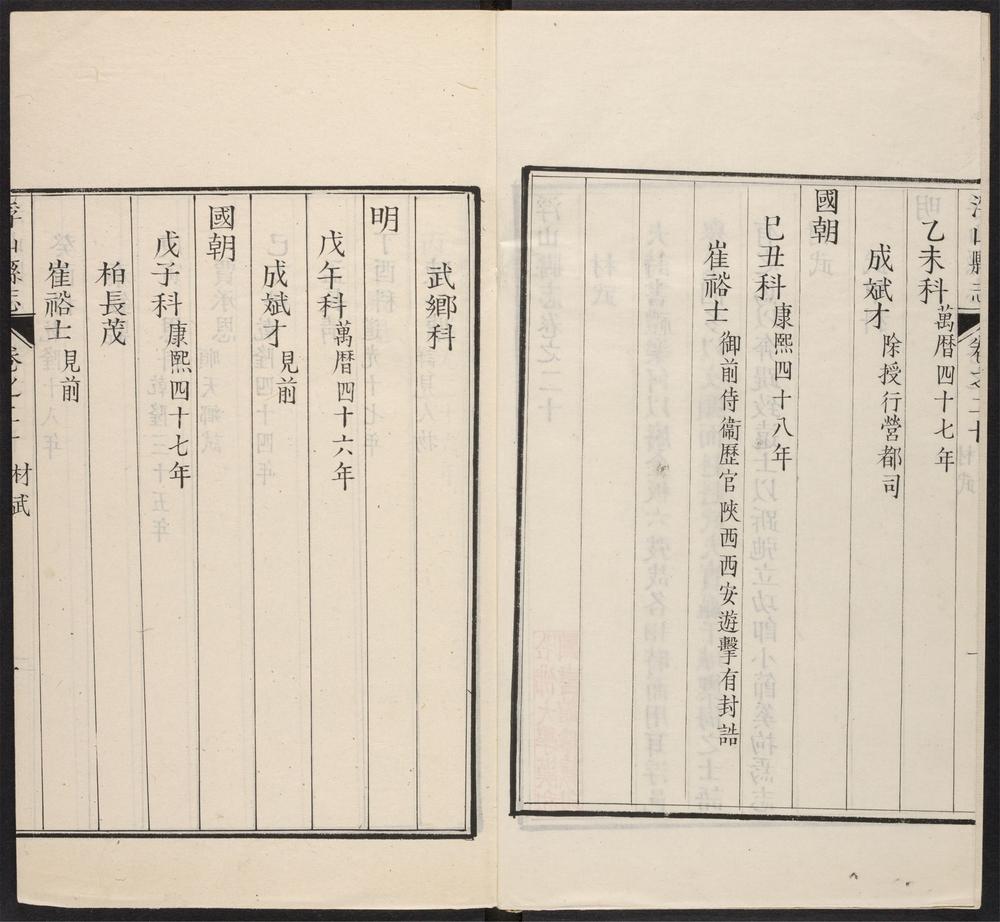 浮山縣志 卷之二十
乙未科 萬曆四十七年
成斌才 除授行營都司
國朝
己丑科 康熙四十八年
崔裕士 御前侍衞歷官陜西西安遊擊有封誥
武鄉科
明
戊午科 萬曆四十六年
成斌才 見前
國朝
戊子科 康熙四十七年
柏長茂
崔裕士 見前
浮山縣志 卷之二十 材武